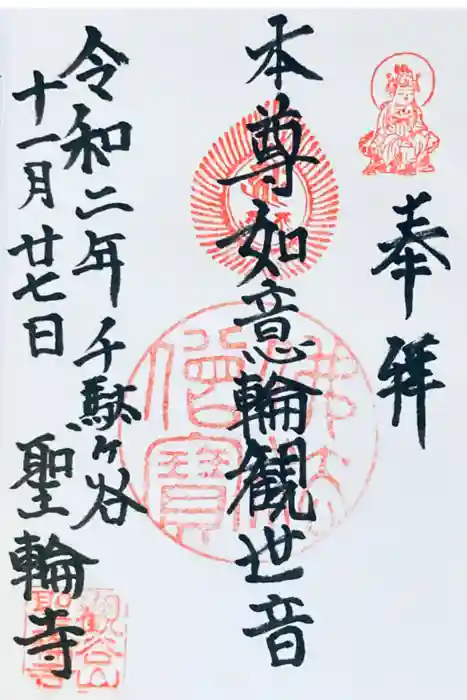 奉拝
本尊如意輪観世音
令和二年 千駄ヶ谷
十一月廿七日 聖輪寺
佛法僧寳
観谷山
聖輪寺